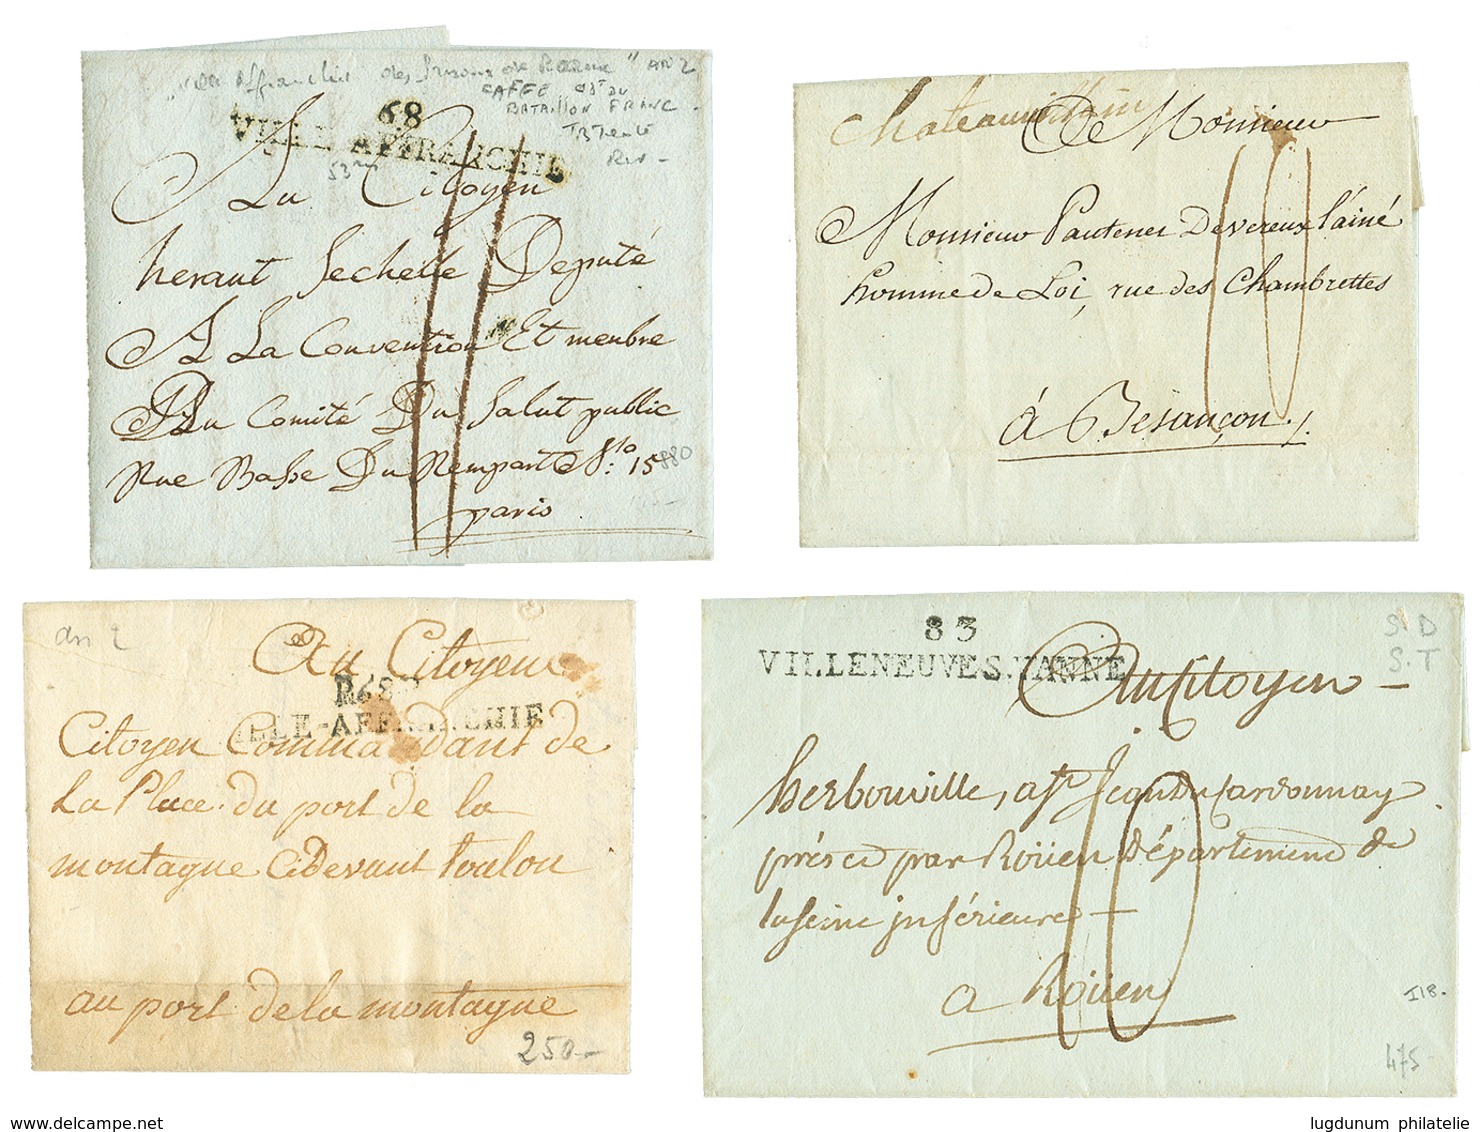 "Ville Affranchie des Prisons de " AN 2
BATAILLON FRANC
68
VILLE-AFFRANCHIE
53
Au Citoyen
heraut Sechelle Deputé
A La Convention Et menbre
Du Comité Du Salut public
Rue Basse Du Rempart No: 15
880
paris
Chateauvillain
De Monsieur
10
Monsieur Pautener Devereux l'ainé
homme de Loi, rue des Chambrettes
à Besançon
an 2
Au Citoyen
R68
ILLE-AFFRANCHIE
Citoyen Commandant de
La Place du port de la
montagne Cidevant toulon
au port de la montagne
250-
83
VILLENEUVE S. YANNE
S.D
S.T
Au Citoyen
herbouville, a St Jean Du Cardonnay
près et par Roüen Département de
la Seine inférieure
10
a Roüen
I18.
475-
delcampe.net
lugdunum philatelie